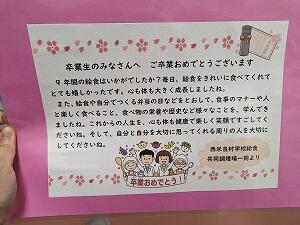 卒業生のみなさんへ　ご卒業おめでとうございます
9年間の給食はいかがでしたか?毎日、給食をきれいに食べてくれて
とても嬉しかったです。心も体も大きく成長しましたね。
また、給食や自分でつくる弁当の日などをとおして、食事のマナーや人
と楽しく食べること、食べ物の栄養や歴史など様々なことを、学んでき
ましたね。これからの人生を、心も体も健康で楽しく笑顔ですごしてく
ださいね。そして、自分と自分を大切に思ってくれる周りの人を大切に
してくださいね。
西米良村学校給食
共同調理場一同より
卒業おめでとう!